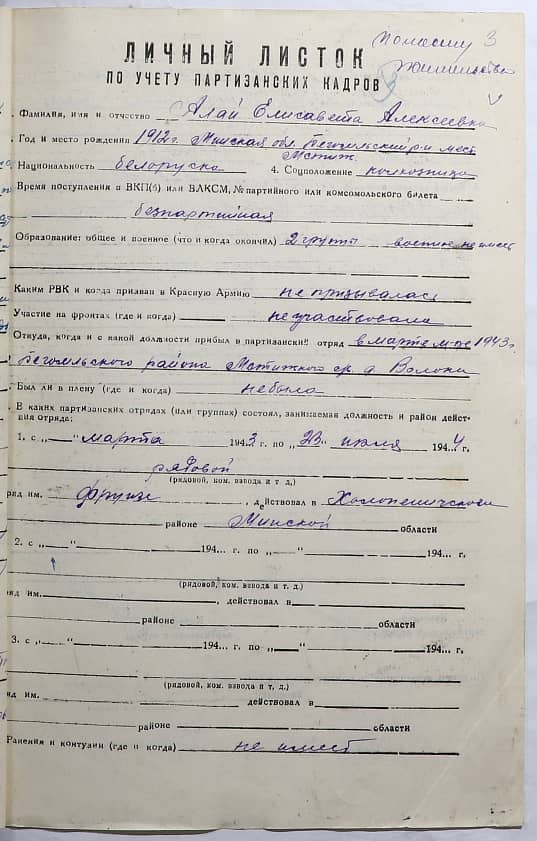 по месту 3
жительства
ЛИЧНЫЙ ЛИСТОК
ПО УЧЕТУ ПАРТИЗАНСКИХ КАДРОВ
. Фамилия, имя и отчество Алай Елисавета Алексеевна
. Год и место рождения 1912 г. Минская обл. Бегомльский р-н мест
Мстиж.
. Национальность белоруска 4. Соцположение колхозница
Время поступления в ВКП(б) или ВЛКСМ, № партийного или комсомольского билета
безпартийная
Образование: общее и военное (что и когда окончил) 2 группы военное не имеет
Каким РВК и когда призван в Красную Армию не призывалась
Участие на фронтах (где и когда) не участвовала
Откуда, когда и с какой должности прибыл в партизанский отряд в марте м-це 1943 г.
Бегомльского района Мстижского ср. д. Волоки
Был ли в плену (где и когда) не была
. В каких партизанских отрядах (или группах) состоял, занимаемая должность и район дейст-
вия отряда:
1. с „—“ марта 1943 г. по „23“ июля 1944 г.
рядовой
(рядовой, ком. взвода и т. д.)
ряд им. Фрунзе, действовал в Холопеничском
районе Минской области
2. с „—“ 194... г. по „—“ 194... г.
(рядовой, ком. взвода и т. д.)
яд им. , действовал в
районе области
3. с „—“ 194... г. по „—“ 194... г.
(рядовой, ком. взвода и т. д.)
яд им. действовал в
районе области
Ранения и контузии (где и когда) не имеет